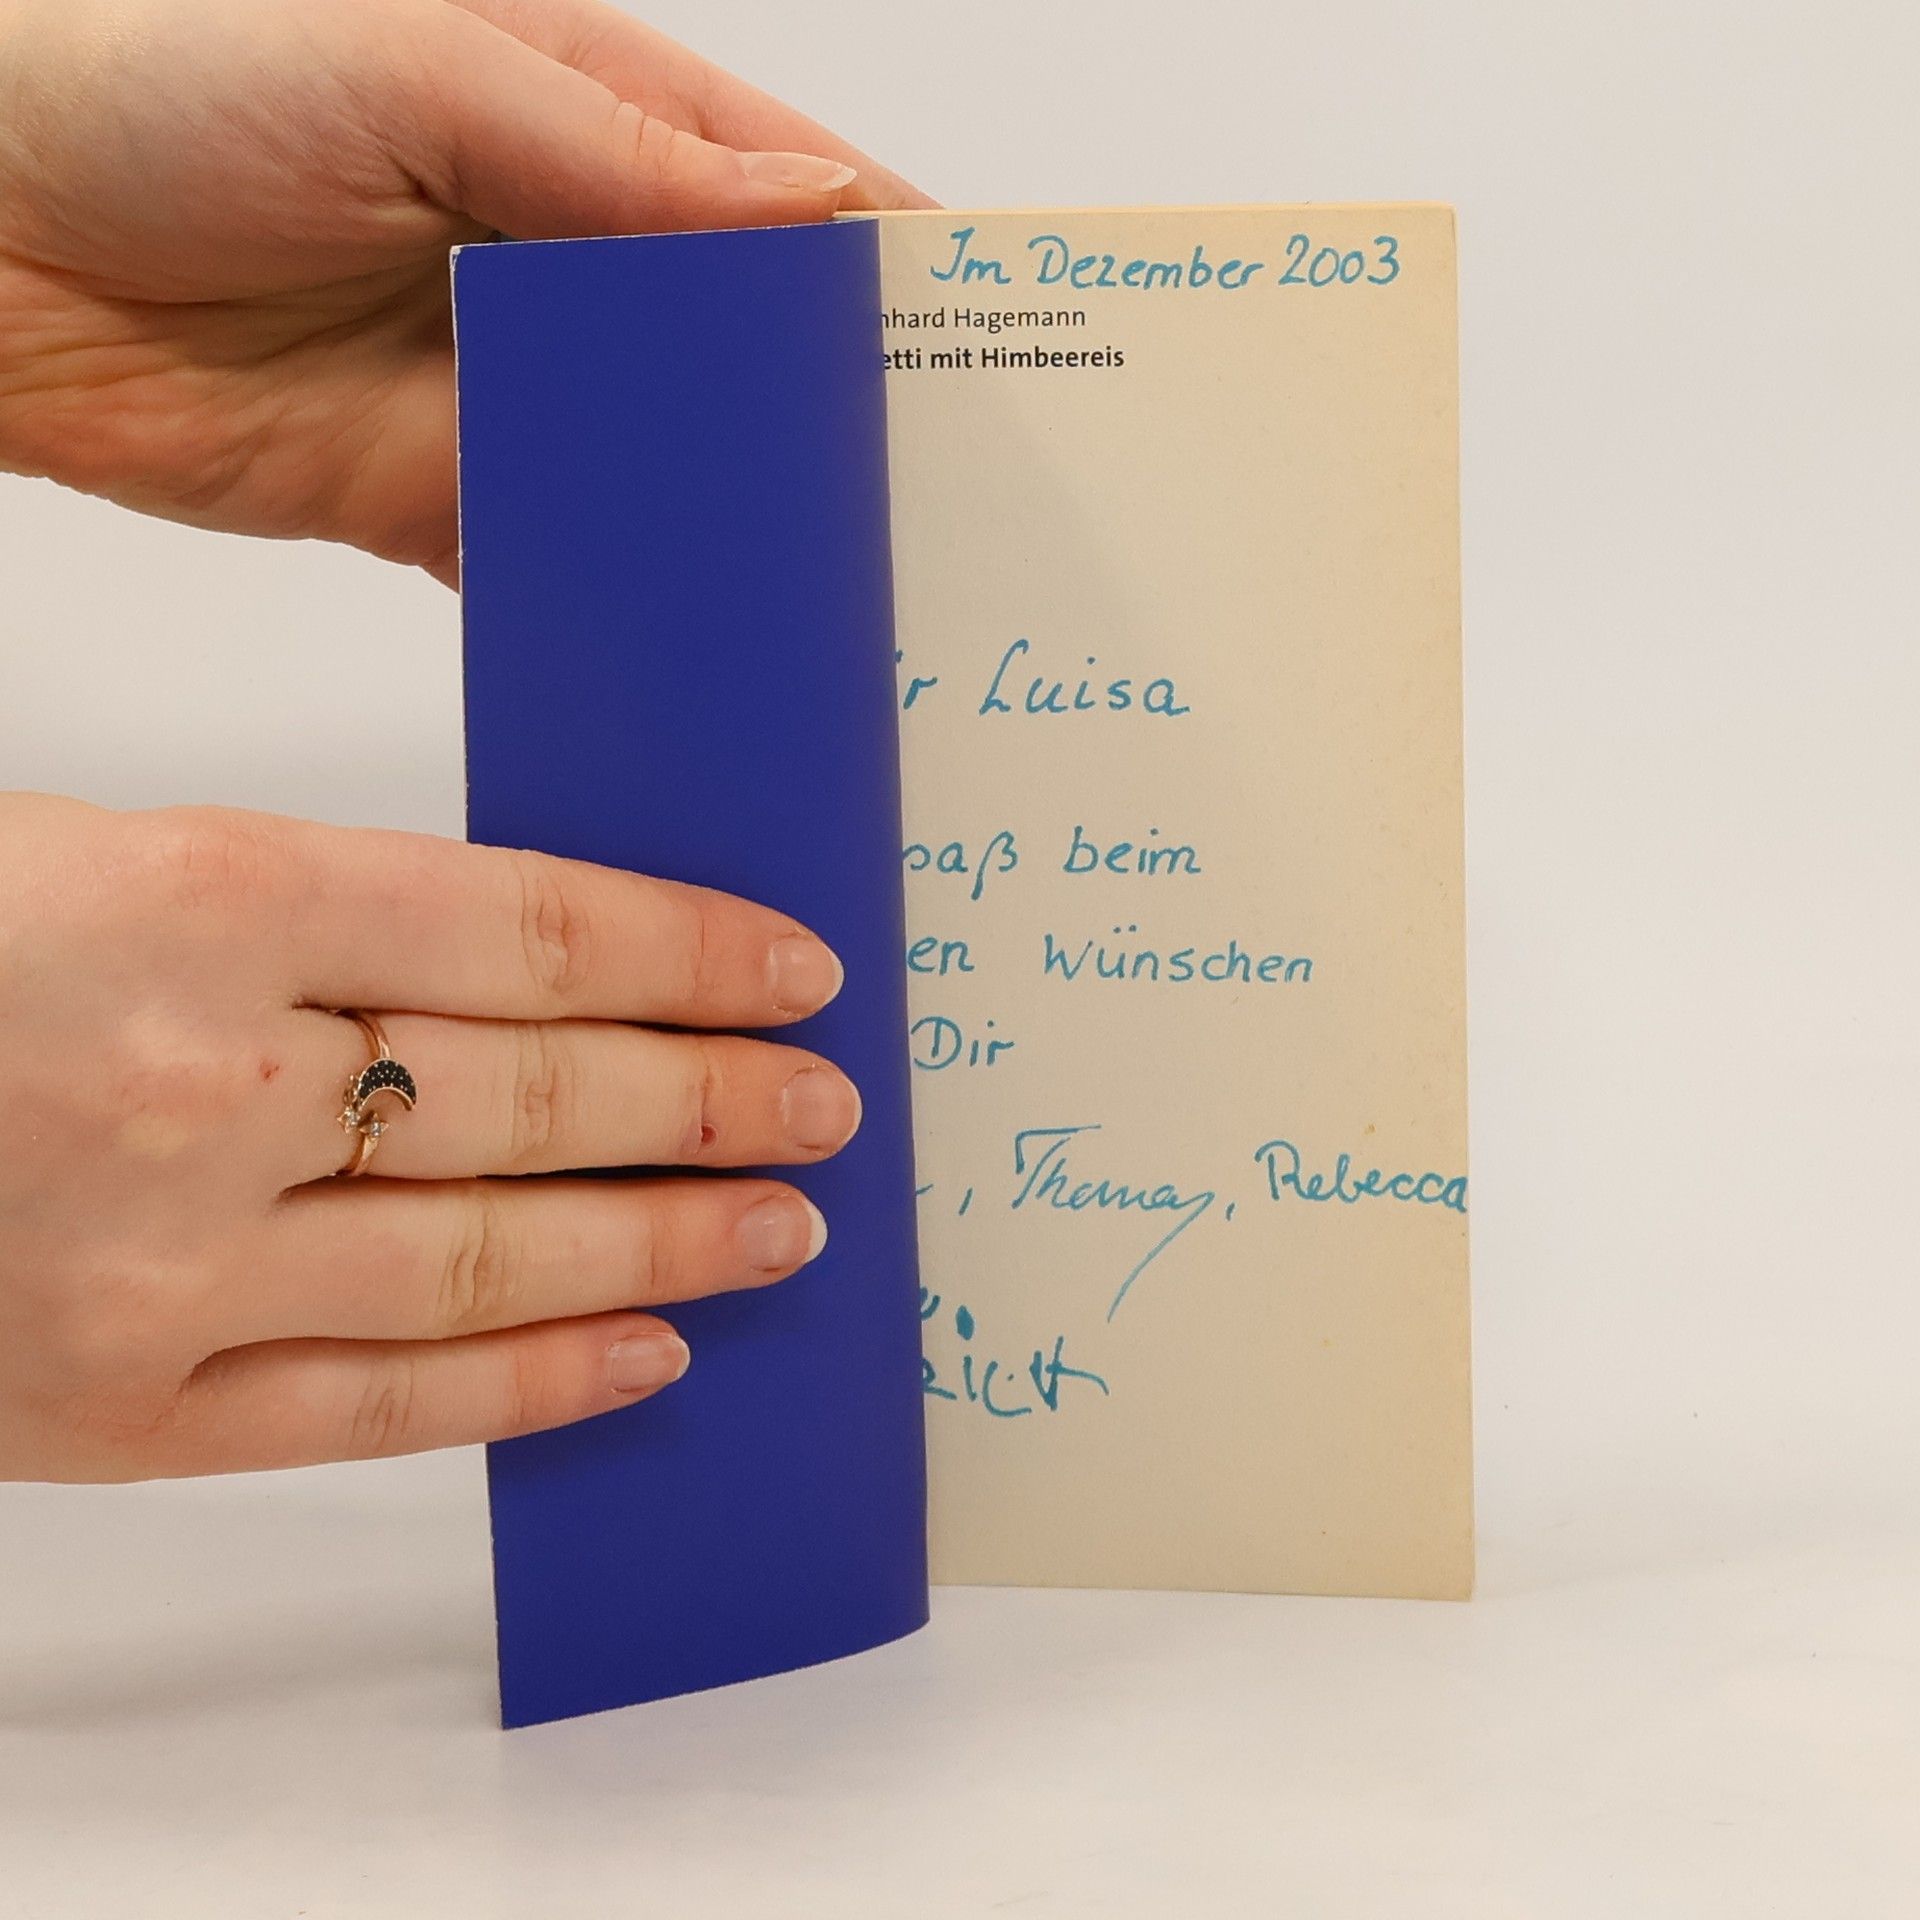 Im Dezember 2003
nhard Hagemann
etti mit Himbeereis
r Luisa
paß beim
en Wünschen
Dir
, Thomas, Rebecca